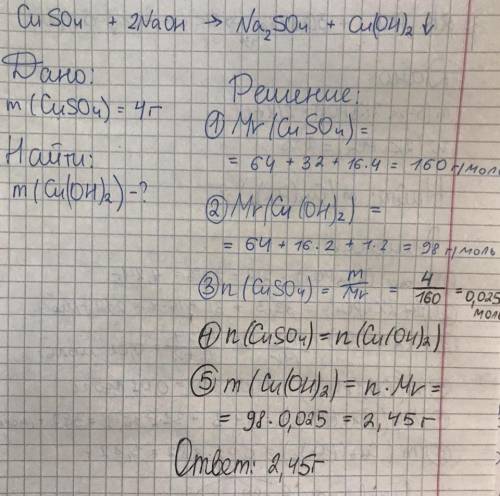 CuSO4 + 2NaOH → Na2SO4 + Cu(OH)2↓
Дано:
m (CuSO4) = 4г
Найти:
m (Cu(OH)2) - ?
Решение:
① Mr (CuSO4) =
= 64 + 32 + 16.4 = 160 г/моль
② Mr (Cu(OH)2) =
= 64 + 16.2 + 1.2 = 98 г/моль
③ n (CuSO4) = m/Mr = 4/160 = 0,025
моль
④ n (CuSO4) = n (Cu(OH)2)
⑤ m (Cu(OH)2) = n · Mr =
= 98 · 0,025 = 2,45г
Ответ: 2,45г